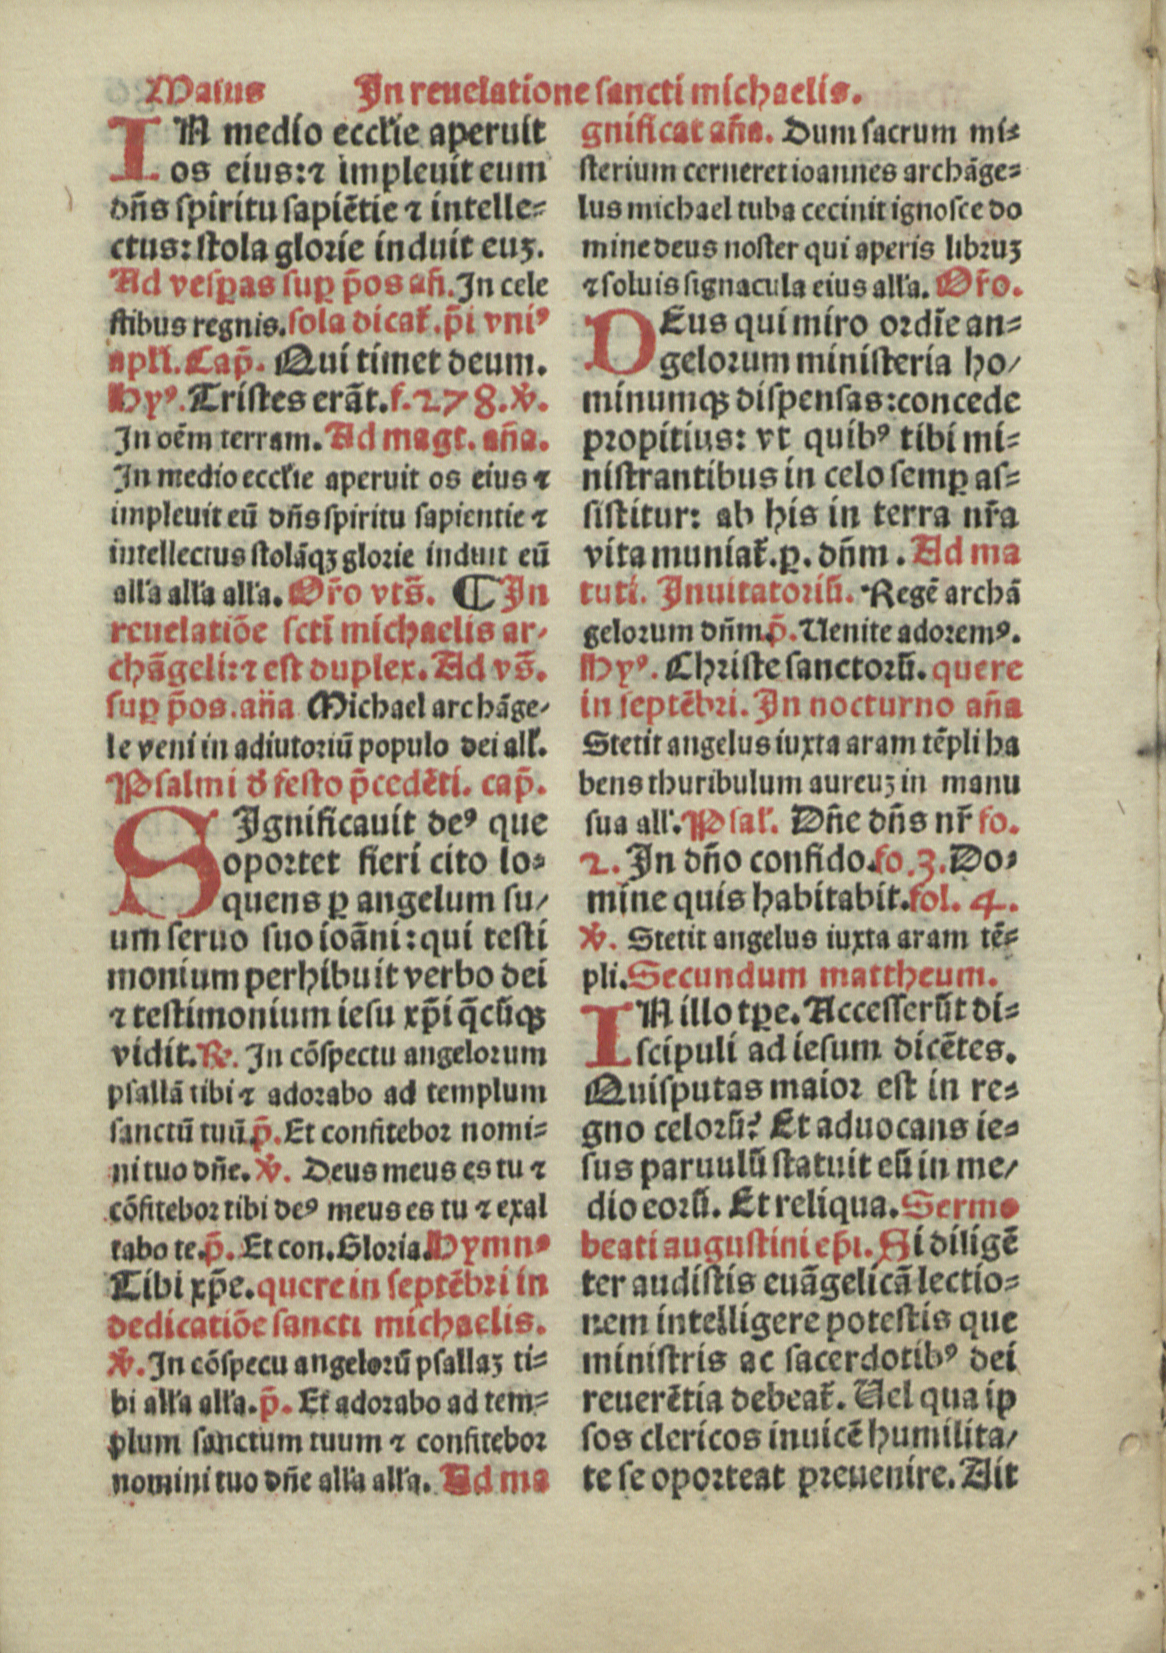 Maius In reuelatione sancti michaelis.
IN medio ecclie aperuit
os eius:⁊ impleuit eum
dñs spiritu sapiẽtie ⁊ intelle⸗
ctus: stola glorie induit euꝫ.
Ad vesꝑas suꝑ p̃os añ. In cele
stibus regnis. sola dicat᷑. p̃i vniꝰ
apl'i. Cap̃. Qui timet deum.
Hyꝰ. Tristes erãt. f. 278. ℣.
In oẽm terram. Ad magt. aña.
In medio ecclie aperuit os eius ⁊
impleuit eũ dñs spiritu sapientie ⁊
intellectus stolãqꝫ glorie induit eũ
all'a all'a all'a. Or̃o vts̃. ¶ In
reuelatiõe scti michaelis ar⸗
chãgeli: ⁊ est duplex. Ad vs̃.
suꝑ p̃os. aña Michael archãge⸗
le veni in adiutoriũ populo dei all'.
Psalmi d' festo p̃cedẽti. cap̃.
SIgnificauit deꝰ que
oportet fieri cito lo⸗
quens ꝑ angelum su⸗
um seruo suo ioãni: qui testi
monium perhibuit verbo dei
⁊ testimonium iesu xp̃i q̃cũqꝫ
vidit. ℟. In cõspectu angelorum
psallã tibi ⁊ adorabo ad templum
sanctũ tuũ p̃. Et confitebor nomi⸗
ni tuo dñe. ℣. Deus meus es tu ⁊
cõfitebor tibi deꝰ meus es tu ⁊ exal
tabo te. p̃. Et con. Gloria. Hymnꝰ
Tibi xp̃e. quere in septẽbri in
dedicatiõe sancti michaelis.
℣. In cõspecu angelorũ psallaꝫ ti⸗
bi all'a all'a. p̃. Et adorabo ad tem⸗
plum sanctum tuum ⁊ confitebor
nomini tuo dñe all'a all'a. Ad ma
gnificat aña. Dum sacrum mi⸗
sterium cerneret ioannes archãge⸗
lus michael tuba cecinit ignosce do
mine deus noster qui aperis libruꝫ
⁊ soluis signacula eius all'a. Or̃o.
DEus qui miro ordĩe an⸗
gelorum ministeria ho⸗
minumqꝫ dispensas: concede
propitius: vt quibꝰ tibi mi⸗
nistrantibus in celo semꝑ as⸗
sistitur: ab his in terra nr̃a
vita muniat᷑. ꝑ. dñm. Ad ma
tuti. Inuitatoriũ. Regẽ archã
gelorum dñm p̃. Uenite adoremꝰ.
Hyꝰ. Christe sanctorũ. quere
in septẽbri. In nocturno aña
Stetit angelus iuxta aram tẽpli ha
bens thuribulum aureuꝫ in manu
sua all'. Psal'. Dñe dñs nr̃ fo.
2. In dño confido. fo. 3. Do⸗
mine quis habitabit. fol. 4.
℣. Stetit angelus iuxta aram tẽ⸗
pli. Secundum mattheum.
IN illo tꝑe. Accesserũt di⸗
scipuli ad iesum dicẽtes.
Quisputas maior est in re⸗
gno celorũ? Et aduocans ie⸗
sus paruulũ statuit eũ in me⸗
dio eorũ. Et reliqua. Sermo
beati augustini ep̃i. Si diligẽ
ter audistis euãgelicã lectio⸗
nem intelligere potestis que
ministris ac sacerdotibꝰ dei
reuerẽtia debeat᷑. Uel qua ip
sos clericos inuicẽ humilita⸗
te se oporteat preuenire. Ait